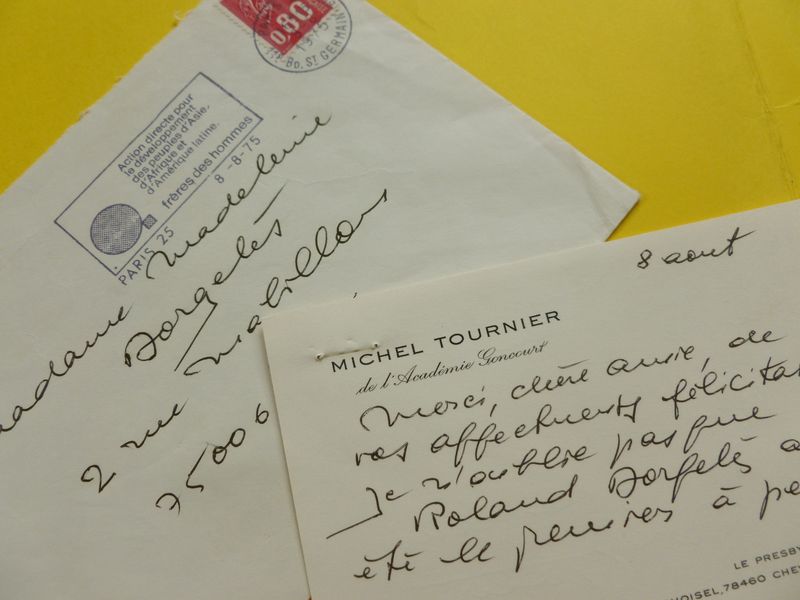 0.80
1975
Bd. ST GERMAIN
Action directe pour
le développement
des peuples d'Asie,
d'Afrique et
d'Amérique latine.
frères des hommes
PARIS 25 8-8-75
Madame Madeleine
Dorgelès
2 rue Mabillon
75006
8 aout
MICHEL TOURNIER
de l'Académie Goncourt
Merci, chère amie, de
vos affectueuses félicitat
Je n'oublie pas que
Roland Dorgelès a
été le premier à pe
LE PRESBY
VOISEL, 78460 CHEV